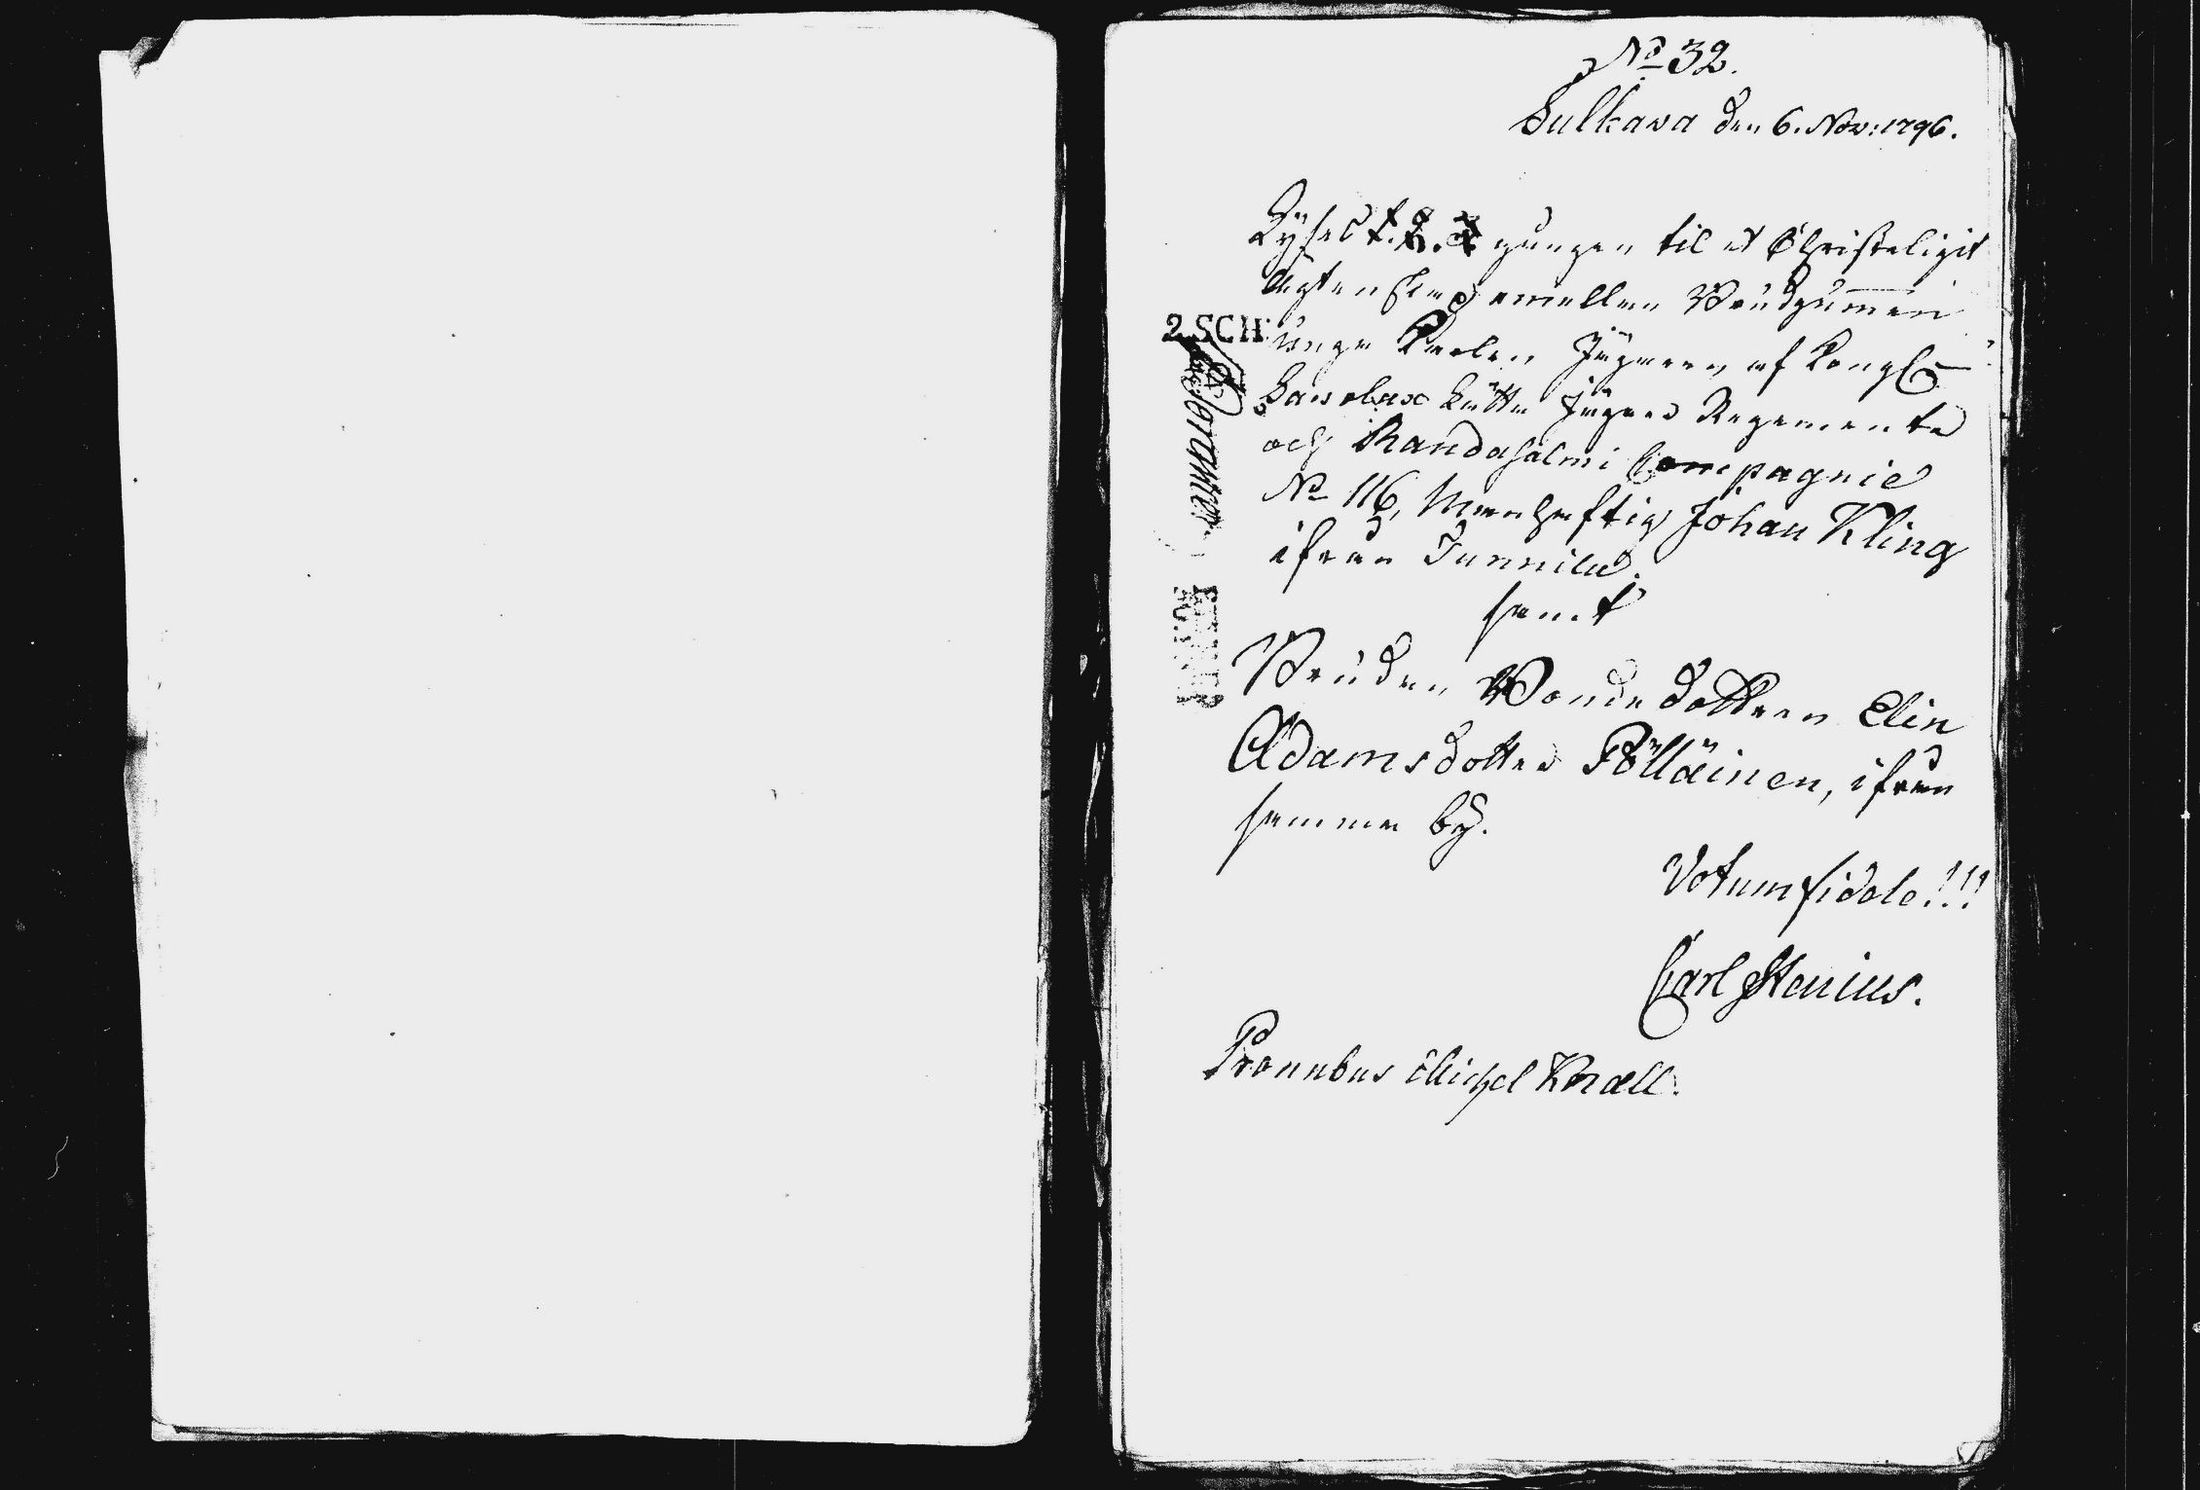 No 32.
Sulkava den 6. Nov: 1796.
Lyses 1. 2. 3 gången til et Christeligit
ägtenskap emellan Brudgummen
2 SCH
unge Karlen Jägaren af Kongl
Savolax Lätta Jägare Regemente
och Randasalmi Compagnie
No 116, Manhaftig Johan Kling
ifrån Tunnila.
samt
Bruden Bondedottern Elin
Adamsdotter Pölläinen, ifrån
samma by.
Votum fidele!!!
Carl Stenius.
Pronubus Michel Knall.